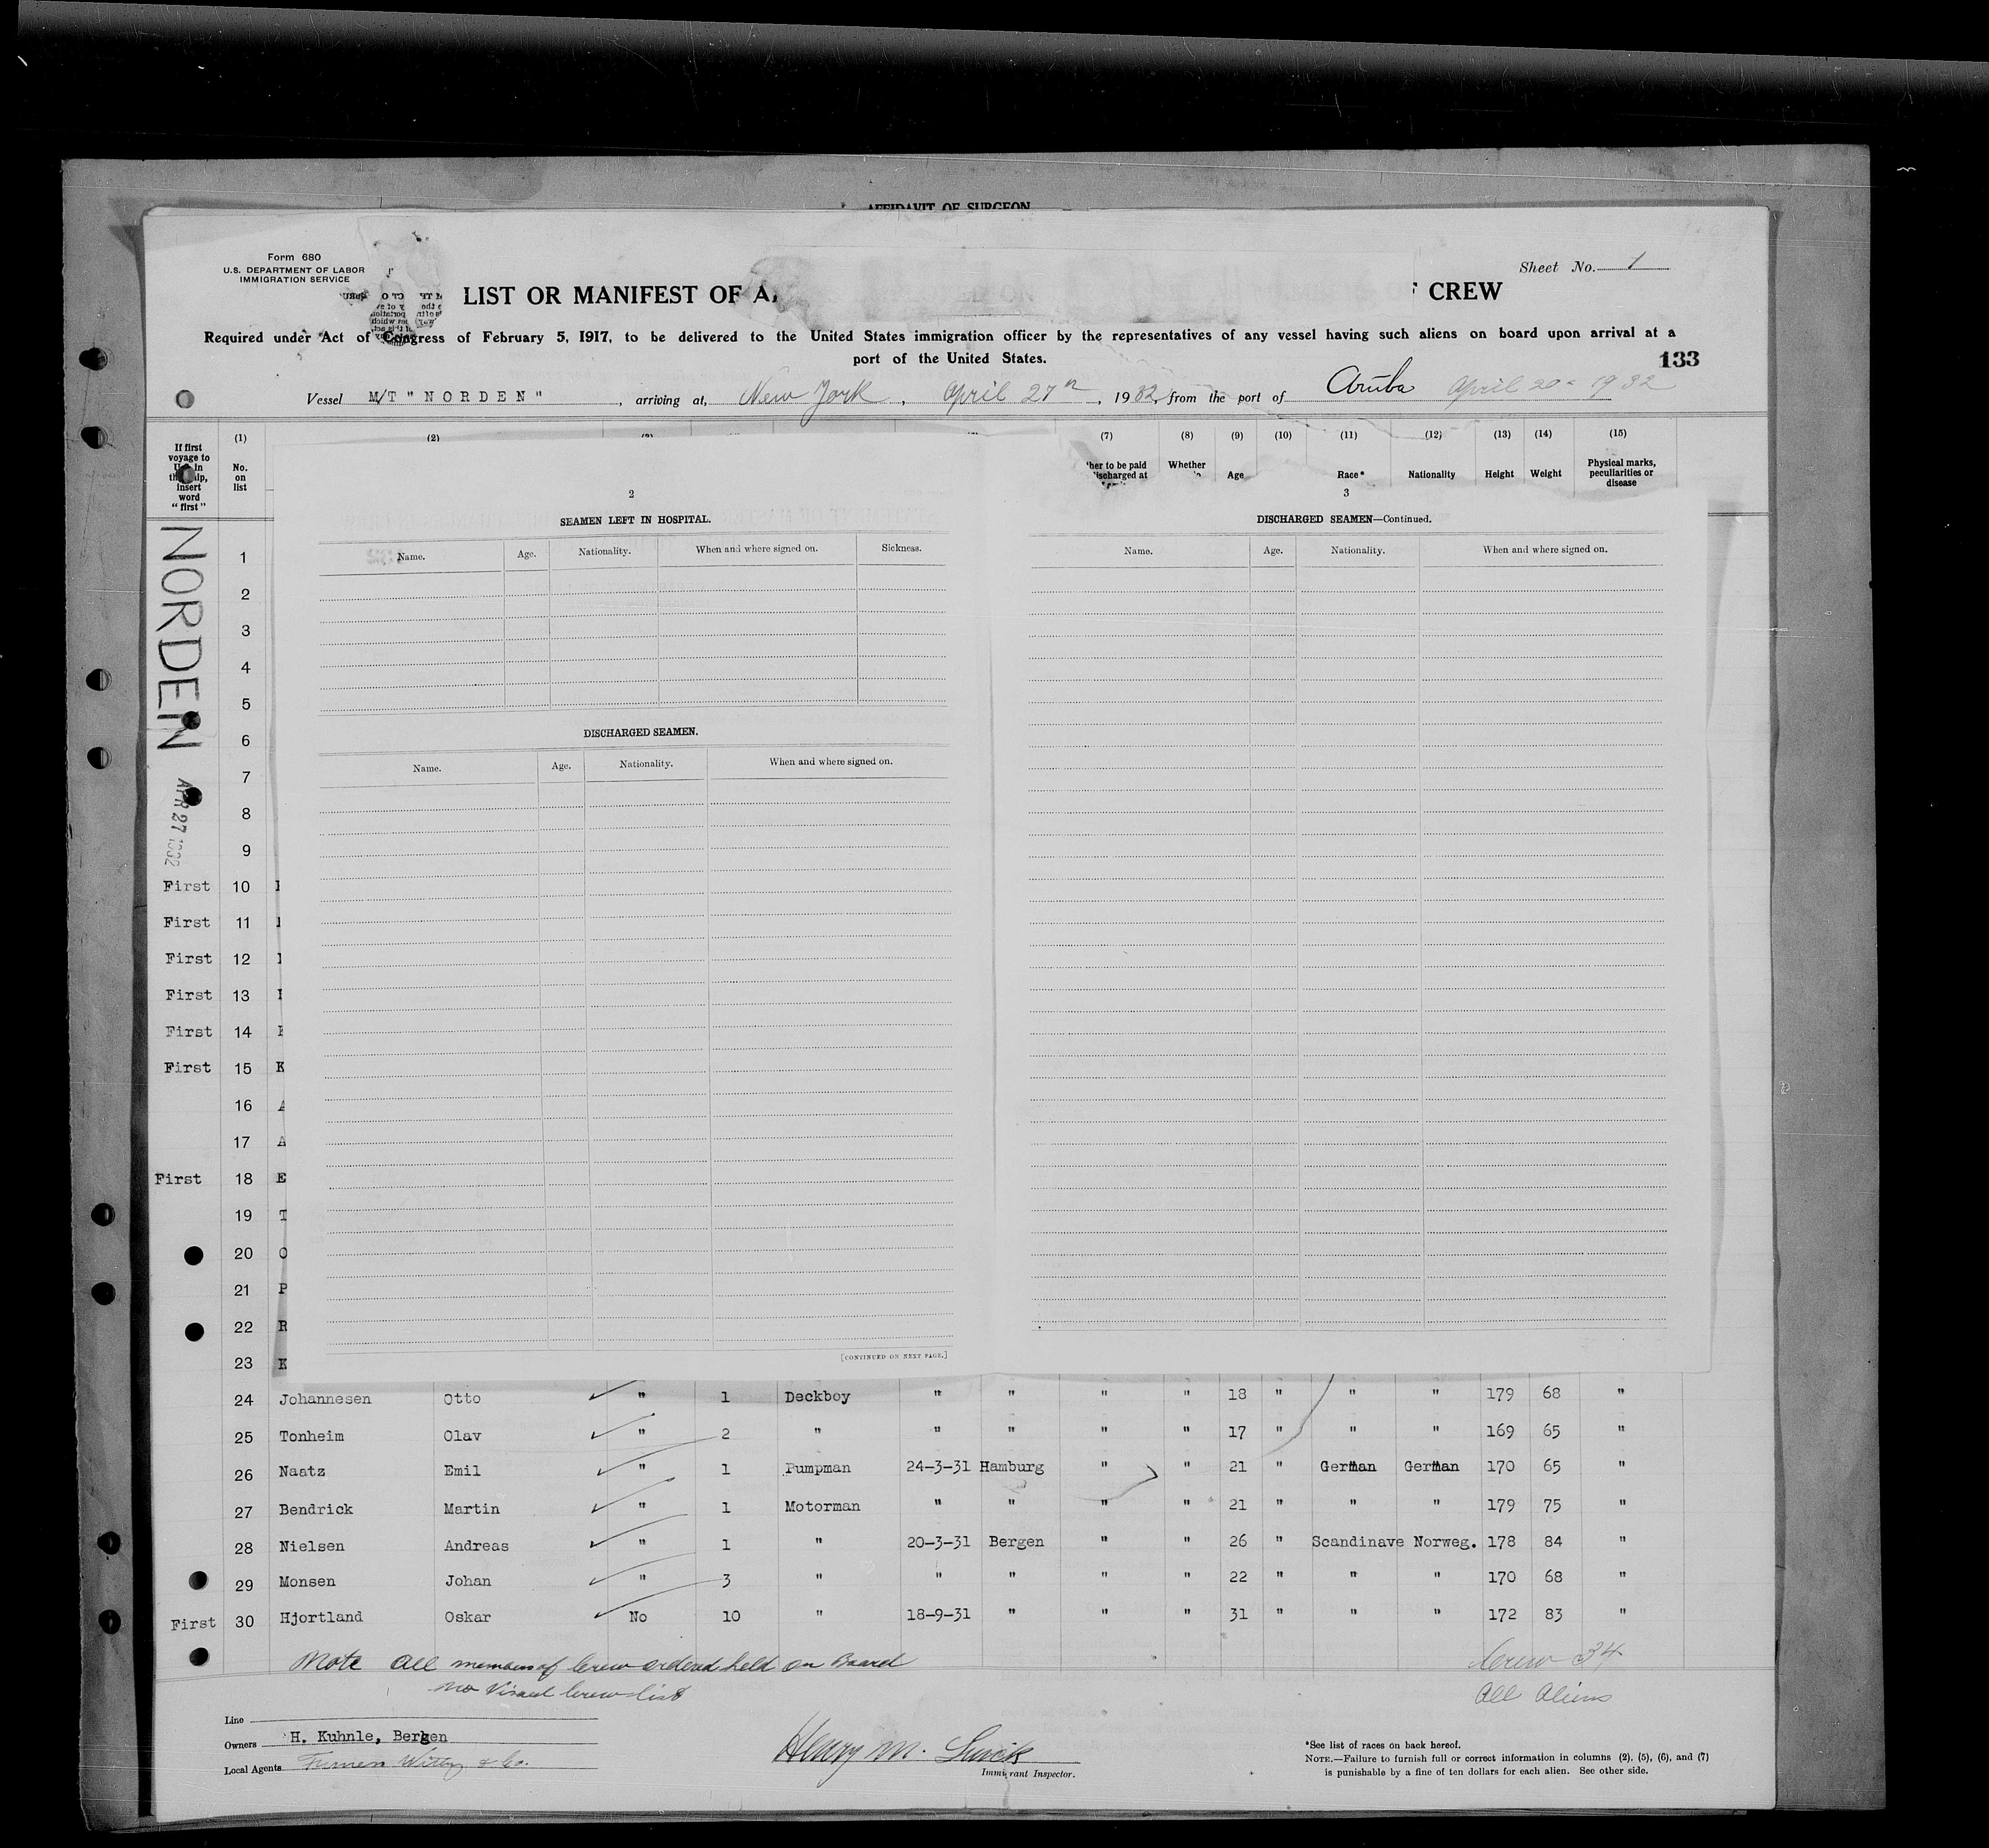 AFFIDAVIT OF SURGEON
Form 680
U.S. DEPARTMENT OF LABOR
IMMIGRATION SERVICE
Sheet No. 1
LIST OR MANIFEST OF A
CREW
Required under Act of Congress of February 5, 1917, to be delivered to the United States immigration officer by the representatives of any vessel having such aliens on board upon arrival at a
port of the United States.
133
Vessel M/T "NORDEN", arriving at, New York, April 27th, 1932, from the port of Aruba April 20 - 1932
(1) (2) (7) (8) (9) (10) (11) (12) (13) (14) (15)
If first voyage to U.S. in this ship, insert word "first"
No. on list
Whether
Age
Race*
Nationality
Height
Weight
Physical marks, peculiarities or disease
NORDEN
APR 27 1932
2
SEAMEN LEFT IN HOSPITAL.
Name. Age. Nationality. When and where signed on. Sickness.
DISCHARGED SEAMEN.
Name. Age. Nationality. When and where signed on.
[CONTINUED ON NEXT PAGE.]
3
DISCHARGED SEAMEN—Continued.
Name. Age. Nationality. When and where signed on.
1
2
3
4
5
6
7
8
9
First 10
First 11
First 12
First 13
First 14
First 15 K
16
17 A
First 18 E
19 T
20 O
21 P
22 R
23 K
24 Johannesen Otto " 1 Deckboy " " " " 18 " " " 179 68 "
25 Tonheim Olav " 2 " " " " " 17 " " " 169 65 "
26 Naatz Emil " 1 Pumpman 24-3-31 Hamburg " " 21 " German German 170 65 "
27 Bendrick Martin " 1 Motorman " " " " 21 " " " 179 75 "
28 Nielsen Andreas " 1 " 20-3-31 Bergen " " 26 " Scandinave Norweg. 178 84 "
29 Monsen Johan " 3 " " " " " 22 " " " 170 68 "
First 30 Hjortland Oskar No 10 " 18-9-31 " " " 31 " " " 172 83 "
Note All members of Crew ordered held on Board
no Visaed Crew list
Crew 34
All Aliens
Line
Owners H. Kuhnle, Bergen
Local Agents Furness Withy & Co.
Henry M.
Immigrant Inspector.
*See list of races on back hereof.
NOTE.—Failure to furnish full or correct information in columns (2), (5), (6), and (7)
is punishable by a fine of ten dollars for each alien. See other side.